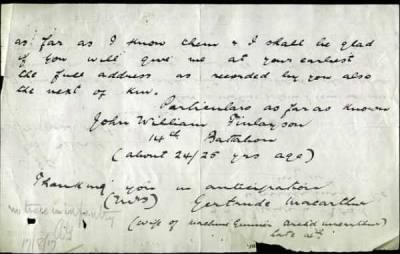 as far as I know them & I shall be glad
if you will give me at your earliest
the full address as recorded by you also
the next of Kin.
Particulars as far as known
John William Finlayson
14th Battalion
(about 24/25 yrs age)
Thanking you in anticipation
(Mrs) Gertrude Macarthur
(wife of machine Gunner Archd Macarthur)
late 14th
no trace in infantry